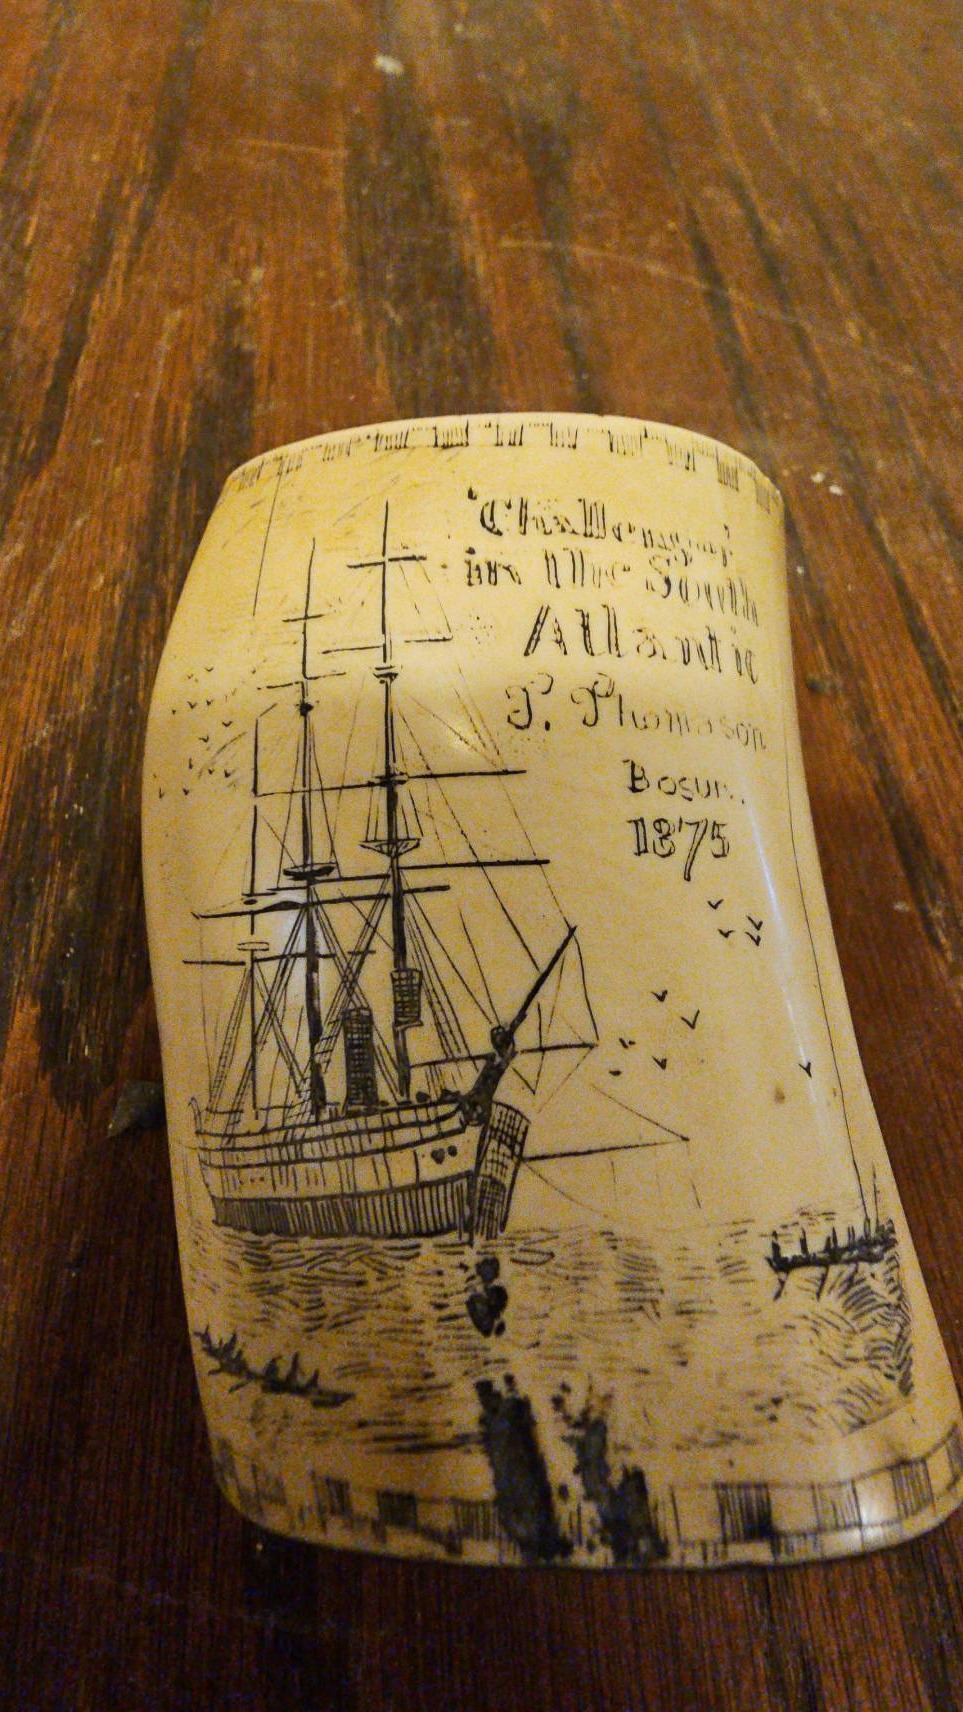 'Challenger'
in the South
Atlantic
Bosun.
1875